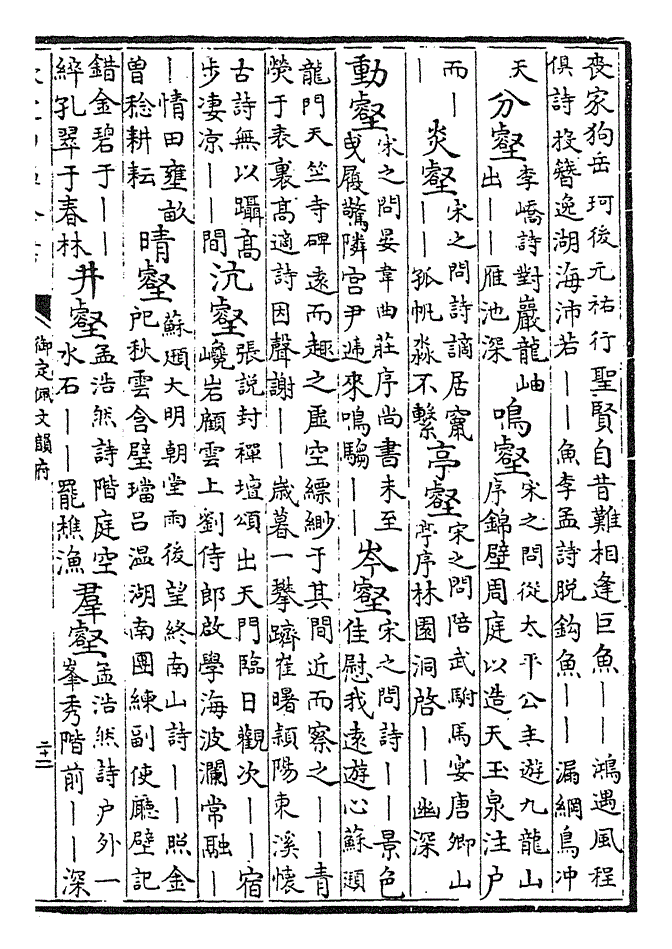 喪家狗岳珂後元祐行聖賢自昔難相逢巨魚――鴻遇風程
俱詩投簪逸湖海沛若――魚李孟詩脫鈎魚――漏網鳥冲
天
分壑
李嶠詩對巖龍岫
出――雁池深
鳴壑
宋之問從太平公主遊九龍山
序錦壁周庭以造天玉泉注户
而―
―
炎壑
宋之問詩謫居竄
――孤帆淼不繫
亭壑
宋之問陪武駙馬宴唐卿山
亭序林園洞啓――幽深
動壑
宋之問晏韋曲莊序尚書未至
曵履驚隣宫尹遞來鳴騶――
岑壑
宋之問詩――景色
佳慰我遠遊心蘇頲
龍門天竺寺碑遠而趣之虛空縹緲于其間近而察之――青
熒于表裏高適詩因聲謝――歳暮一攀躋崔曙潁陽東溪懷
古詩無以躡高
步凄凉――間
沆壑
張説封禪壇頌出天門臨日觀次――宿
巉岩顧雲上劉侍郎啟學海波瀾常融―
―情田壅畝
曾稔耕耘
晴壑
蘇頲大明朝堂雨後望終南山詩――照金
秋雲含璧璫吕温湖南團練副使廳壁記
錯金碧于――
綷孔翠于春林
井壑
孟浩然詩階庭空
水石――罷樵漁
羣壑
孟浩然詩户外一
峯秀階前――深
御定佩文韻府
二十二